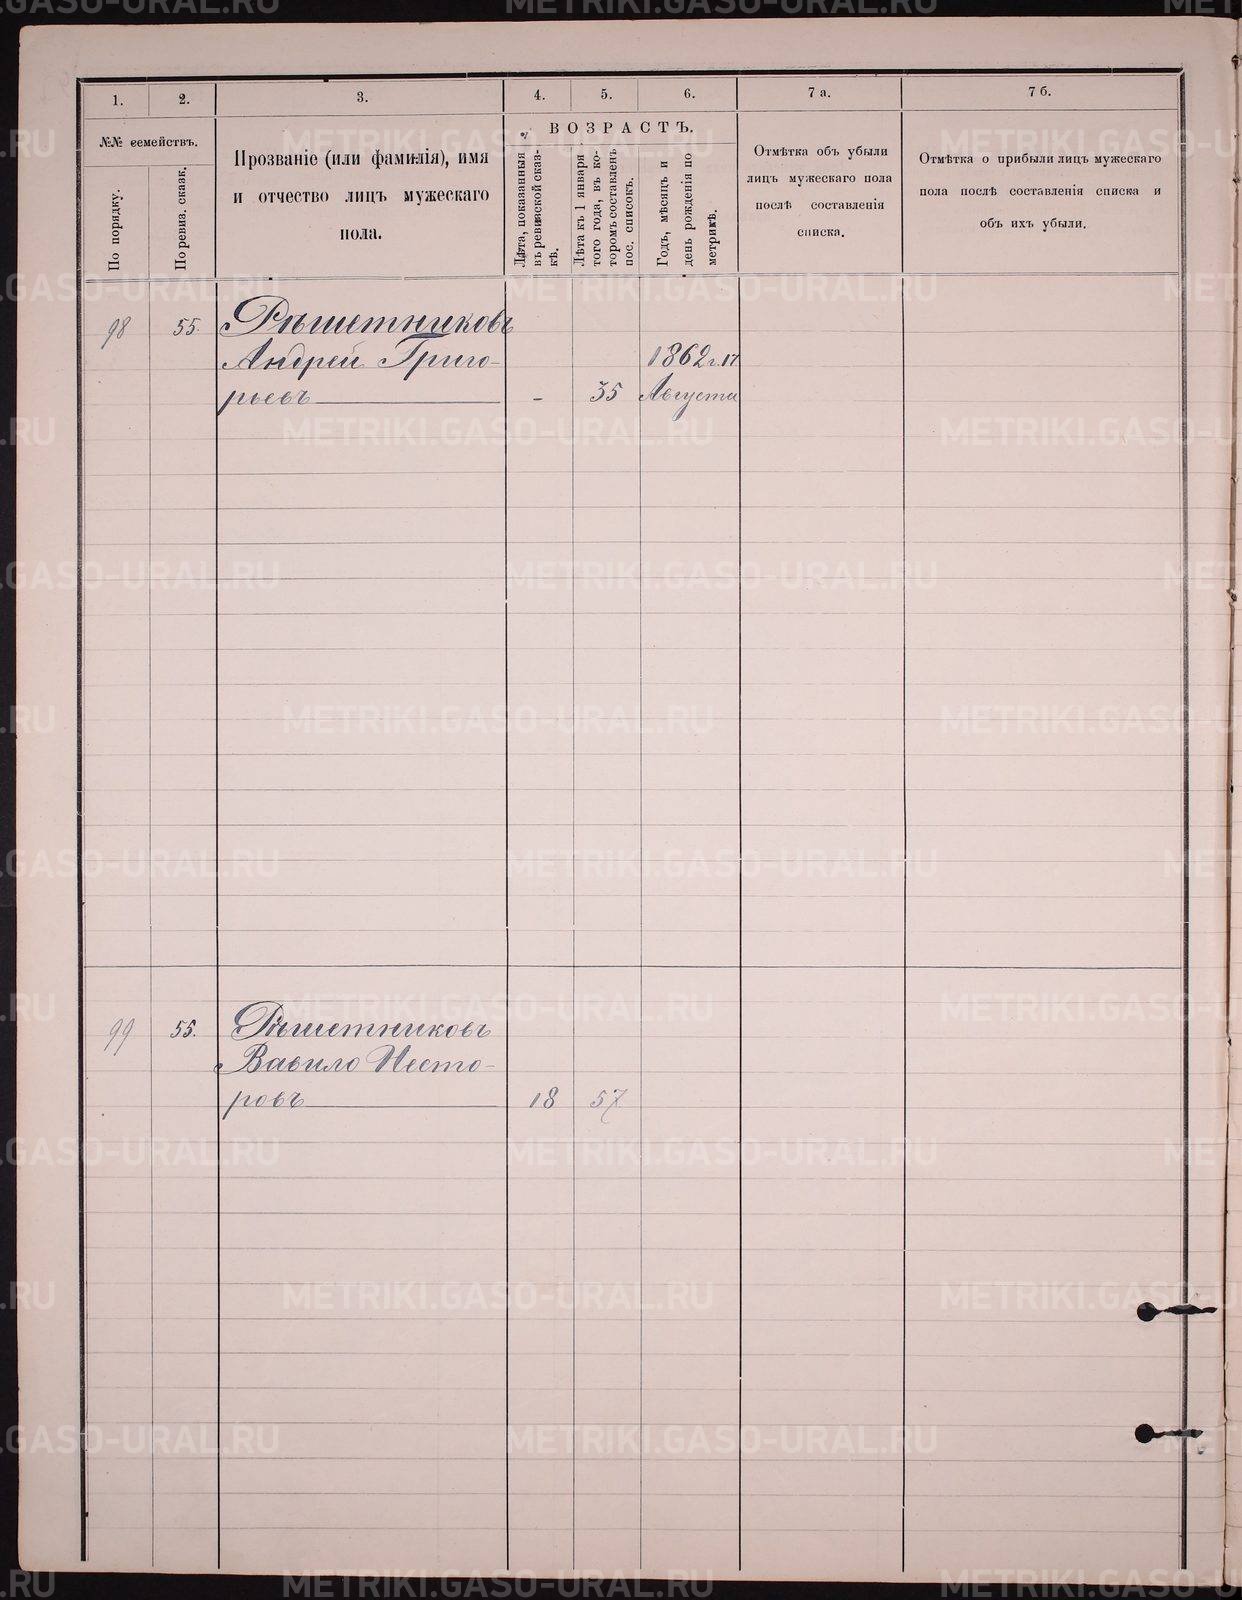 1.
2.
3.
4.
5.
6.
7 а.
7 б.
№№ семействъ.
По порядку.
По ревиз. сказк.
Прозваніе (или фамилія), имя
и отчество лицъ мужескаго
пола.
ВОЗРАСТЪ.
Лѣта, показанныя
въ ревизской сказ-
кѣ.
Лѣта къ 1 января
того года, въ ко-
торомъ составленъ
пос. списокъ.
Годъ, мѣсяцъ и
день рожденія по
метрикѣ.
Отмѣтка объ убыли
лицъ мужескаго пола
послѣ составленія
списка.
Отмѣтка о прибыли лицъ мужескаго
пола послѣ составленія списка и
объ ихъ убыли.
98 55. Рѣшетниковъ
Андрей Григо- 1862 г. 17
рьевъ - 35 Августа
99 55. Рѣшетниковъ
Вавило Несто-
ровъ 18 57
METRIKI.GASO-URAL.RU